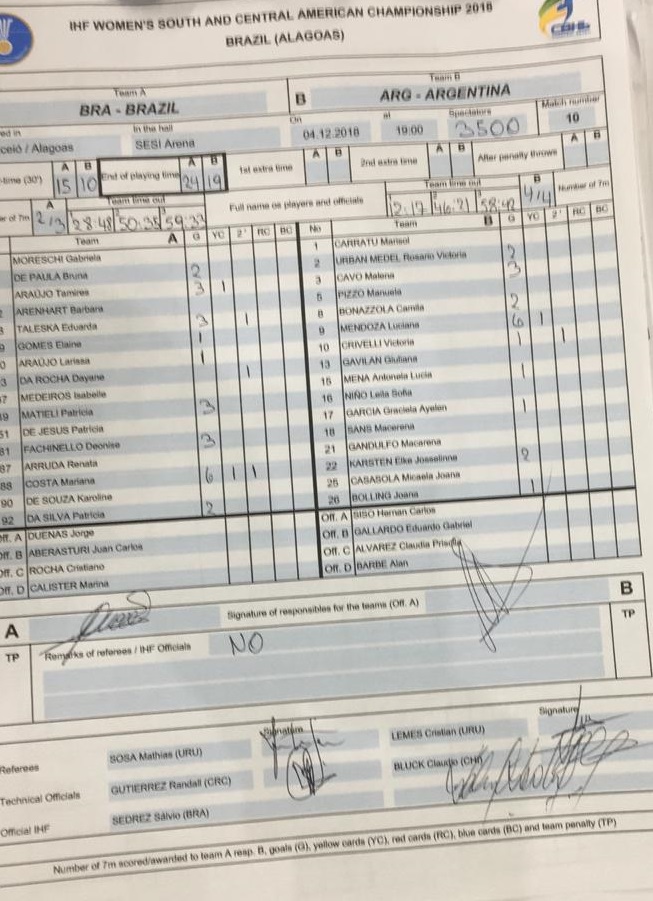 IHF WOMEN'S SOUTH AND CENTRAL AMERICAN CHAMPIONSHIP 2018
BRAZIL (ALAGOAS)
Team A
BRA - BRAZIL
B
Team B
ARG - ARGENTINA
ed in
In the hall
On
at
Spectators
Match number
ceió / Alagoas
SESI Arena
04.12.2018
19:00
3500
10
-time (30')
A B
15 10
End of playing time
A B
24 19
1st extra time
A B
2nd extra time
A B
After penalty throws
A B
er of 7m
A
2/3
Team time out
28:48 50:35 59:33
Full name os players and officials
Team time out
12:17 46:21 58:42
B
4/4
Number of 7m
Team A G YC 2' RC BC
No Team B G YC 2' RC BC
MORESCHI Gabriela
DE PAULA Bruna 2
ARAÚJO Tamires 3 1
ARENHART Barbara
TALESKA Eduarda 3 1
9 GOMES Elaine 1
0 ARAÚJO Larissa 1
3 DA ROCHA Dayane 1
7 MEDEIROS Isabelle
49 MATIELI Patricia 3
51 DE JESUS Patricia
81 FACHINELLO Deonise 3
87 ARRUDA Renata
88 COSTA Mariana 6 1 1
90 DE SOUZA Karoline
92 DA SILVA Patricia 2
Off. A DUENAS Jorge
Off. B ABERASTURI Juan Carlos
Off. C ROCHA Cristiano
Off. D CALISTER Marina
1 CARRATU Marisol
2 URBAN MEDEL Rosario Victoria 2
3 CAVO Malena 3
5 PIZZO Manuela
8 BONAZZOLA Camila 2
9 MENDOZA Luciana 6 1
10 CRIVELLI Victoria 1 1
13 GAVILAN Giuliana
15 MENA Antonela Lucia 1
16 NIÑO Leila Sofia
17 GARCIA Graciela Ayelen 1
18 SANS Macarena
21 GANDULFO Macarena
22 KARSTEN Elke Josselinne 2
25 CASASOLA Micaela Joana
26 BOLLING Joana 1
Off. A SISO Hernan Carlos
Off. B GALLARDO Eduardo Gabriel
Off. C ALVAREZ Claudia Priscila
Off. D BARBE Alan
A
Signature of responsibles for the teams (Off. A)
B
TP
Remarks of referees / IHF Officials
NO
TP
Referees
SOSA Mathias (URU)
Signature
LEMES Cristian (URU)
Signature
Technical Officials
GUTIERREZ Randall (CRC)
BLUCK Claudio (CHI)
Official IHF
SEDREZ Sálvio (BRA)
Number of 7m scored/awarded to team A resp. B, goals (G), yellow cards (YC), red cards (RC), blue cards (BC) and team penalty (TP)